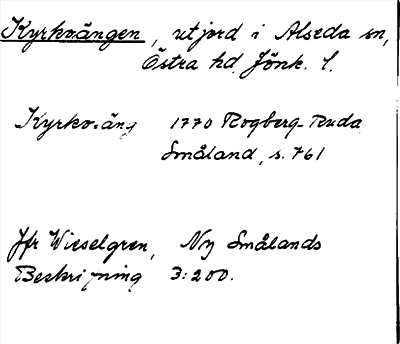 Kyrkoängen, utjord i Alseda sn,
Östra hd, Jönk. l.
Kyrkoäng 1770 Rogberg-Ruda
Småland, s. 761
Jfr Wieselgren, Ny Smålands
Beskrifning 3:200.